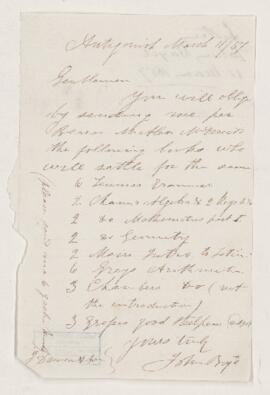 Antigonish March 11/57
Gentlemen
You will oblige
by sending me per
Bearer
the following books who
will settle for the same
6 Lennies Grammar
2 Chambers Algebra &
2 do Mathematics part 1
2 do Geometry
2 Mairs Intro to Latin
6 Grays Arithmetic
3 Chambers do (not
the introduction)
3 Gropes good
Yours truly
John Boyd
(please send me